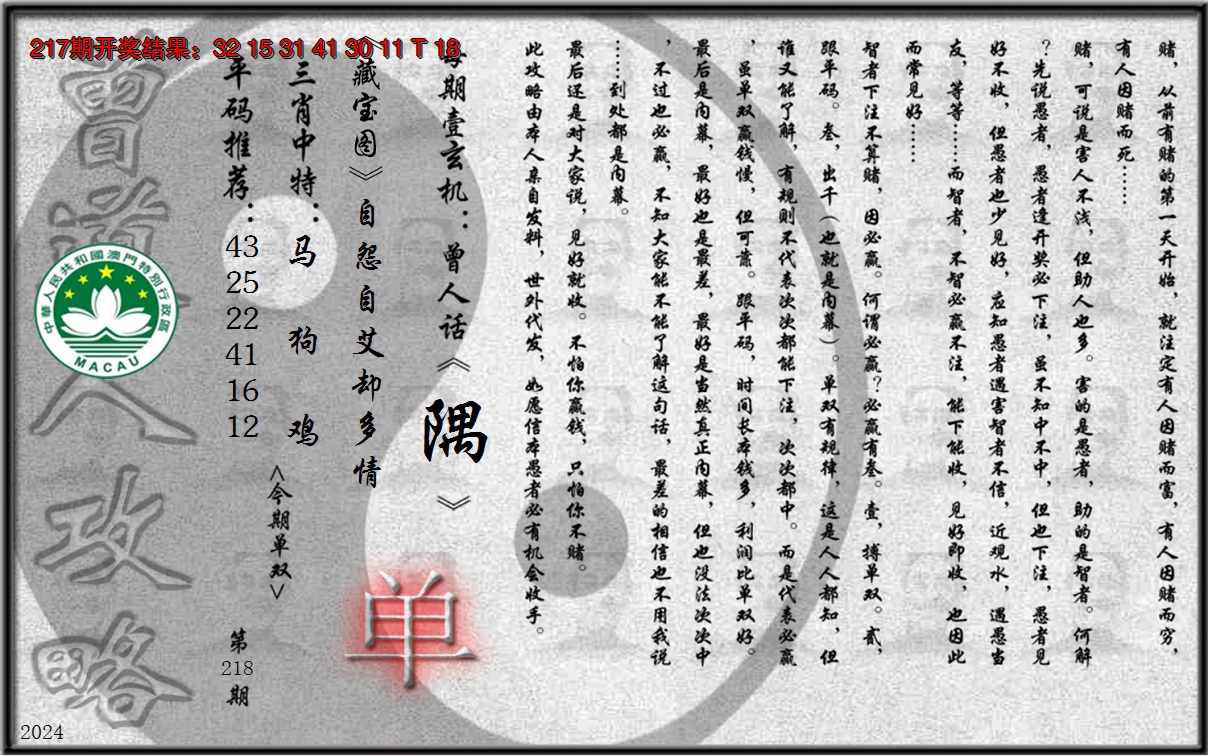 217期开奖结果：32 15 31 41 30 11 T 18
赌，从前有赌的第一天开始，就注定有人因赌而富，有人因赌而穷，
有人因赌而死……
赌，可说是害人不浅，但助人也多。害的是愚者，助的是智者。何解
？先说愚者，愚者逢开奖必下注，虽不知中不中，但也下注，愚者见
好不收，但愚者也少见好，应知愚者遇害智者不信，近观水，遇愚当
友，等等……而智者，不智必赢不注，能下能收，见好即收，也因此
而常见好……
智者下注不算赌，因必赢。何谓必赢？必赢有叁。壹，搏单双。贰，
跟平码。叁，出千（也就是内幕）。单双有规律，这是人人都知，但
谁又能了解，有规则不代表次次都能下注，次次都中。而是代表必赢
，虽单双赢钱慢，但可靠。跟平码，时间长本钱多，利润比单双好。
最后是内幕，最好也是最差，最好是当然真正内幕，但也没法次次中
，不过也必赢，不知大家能不能了解这句话，最差的相信也不用我说
……到处都是内幕。
最后还是对大家说，见好就收。不怕你赢钱，只怕你不赌。
此攻略由本人亲自发料，世外代发，如愿信本愚者必有机会收手。
每期壹玄机：曾人话《隅》
《藏宝图》自怨自艾却多情
单
三肖中特：马 狗 鸡
<今期单双>
平码推荐：
43
25
22
41
16
12
第
218
期
曾道人攻略
中華人民共和國澳門特別行政區
MACAU
2024